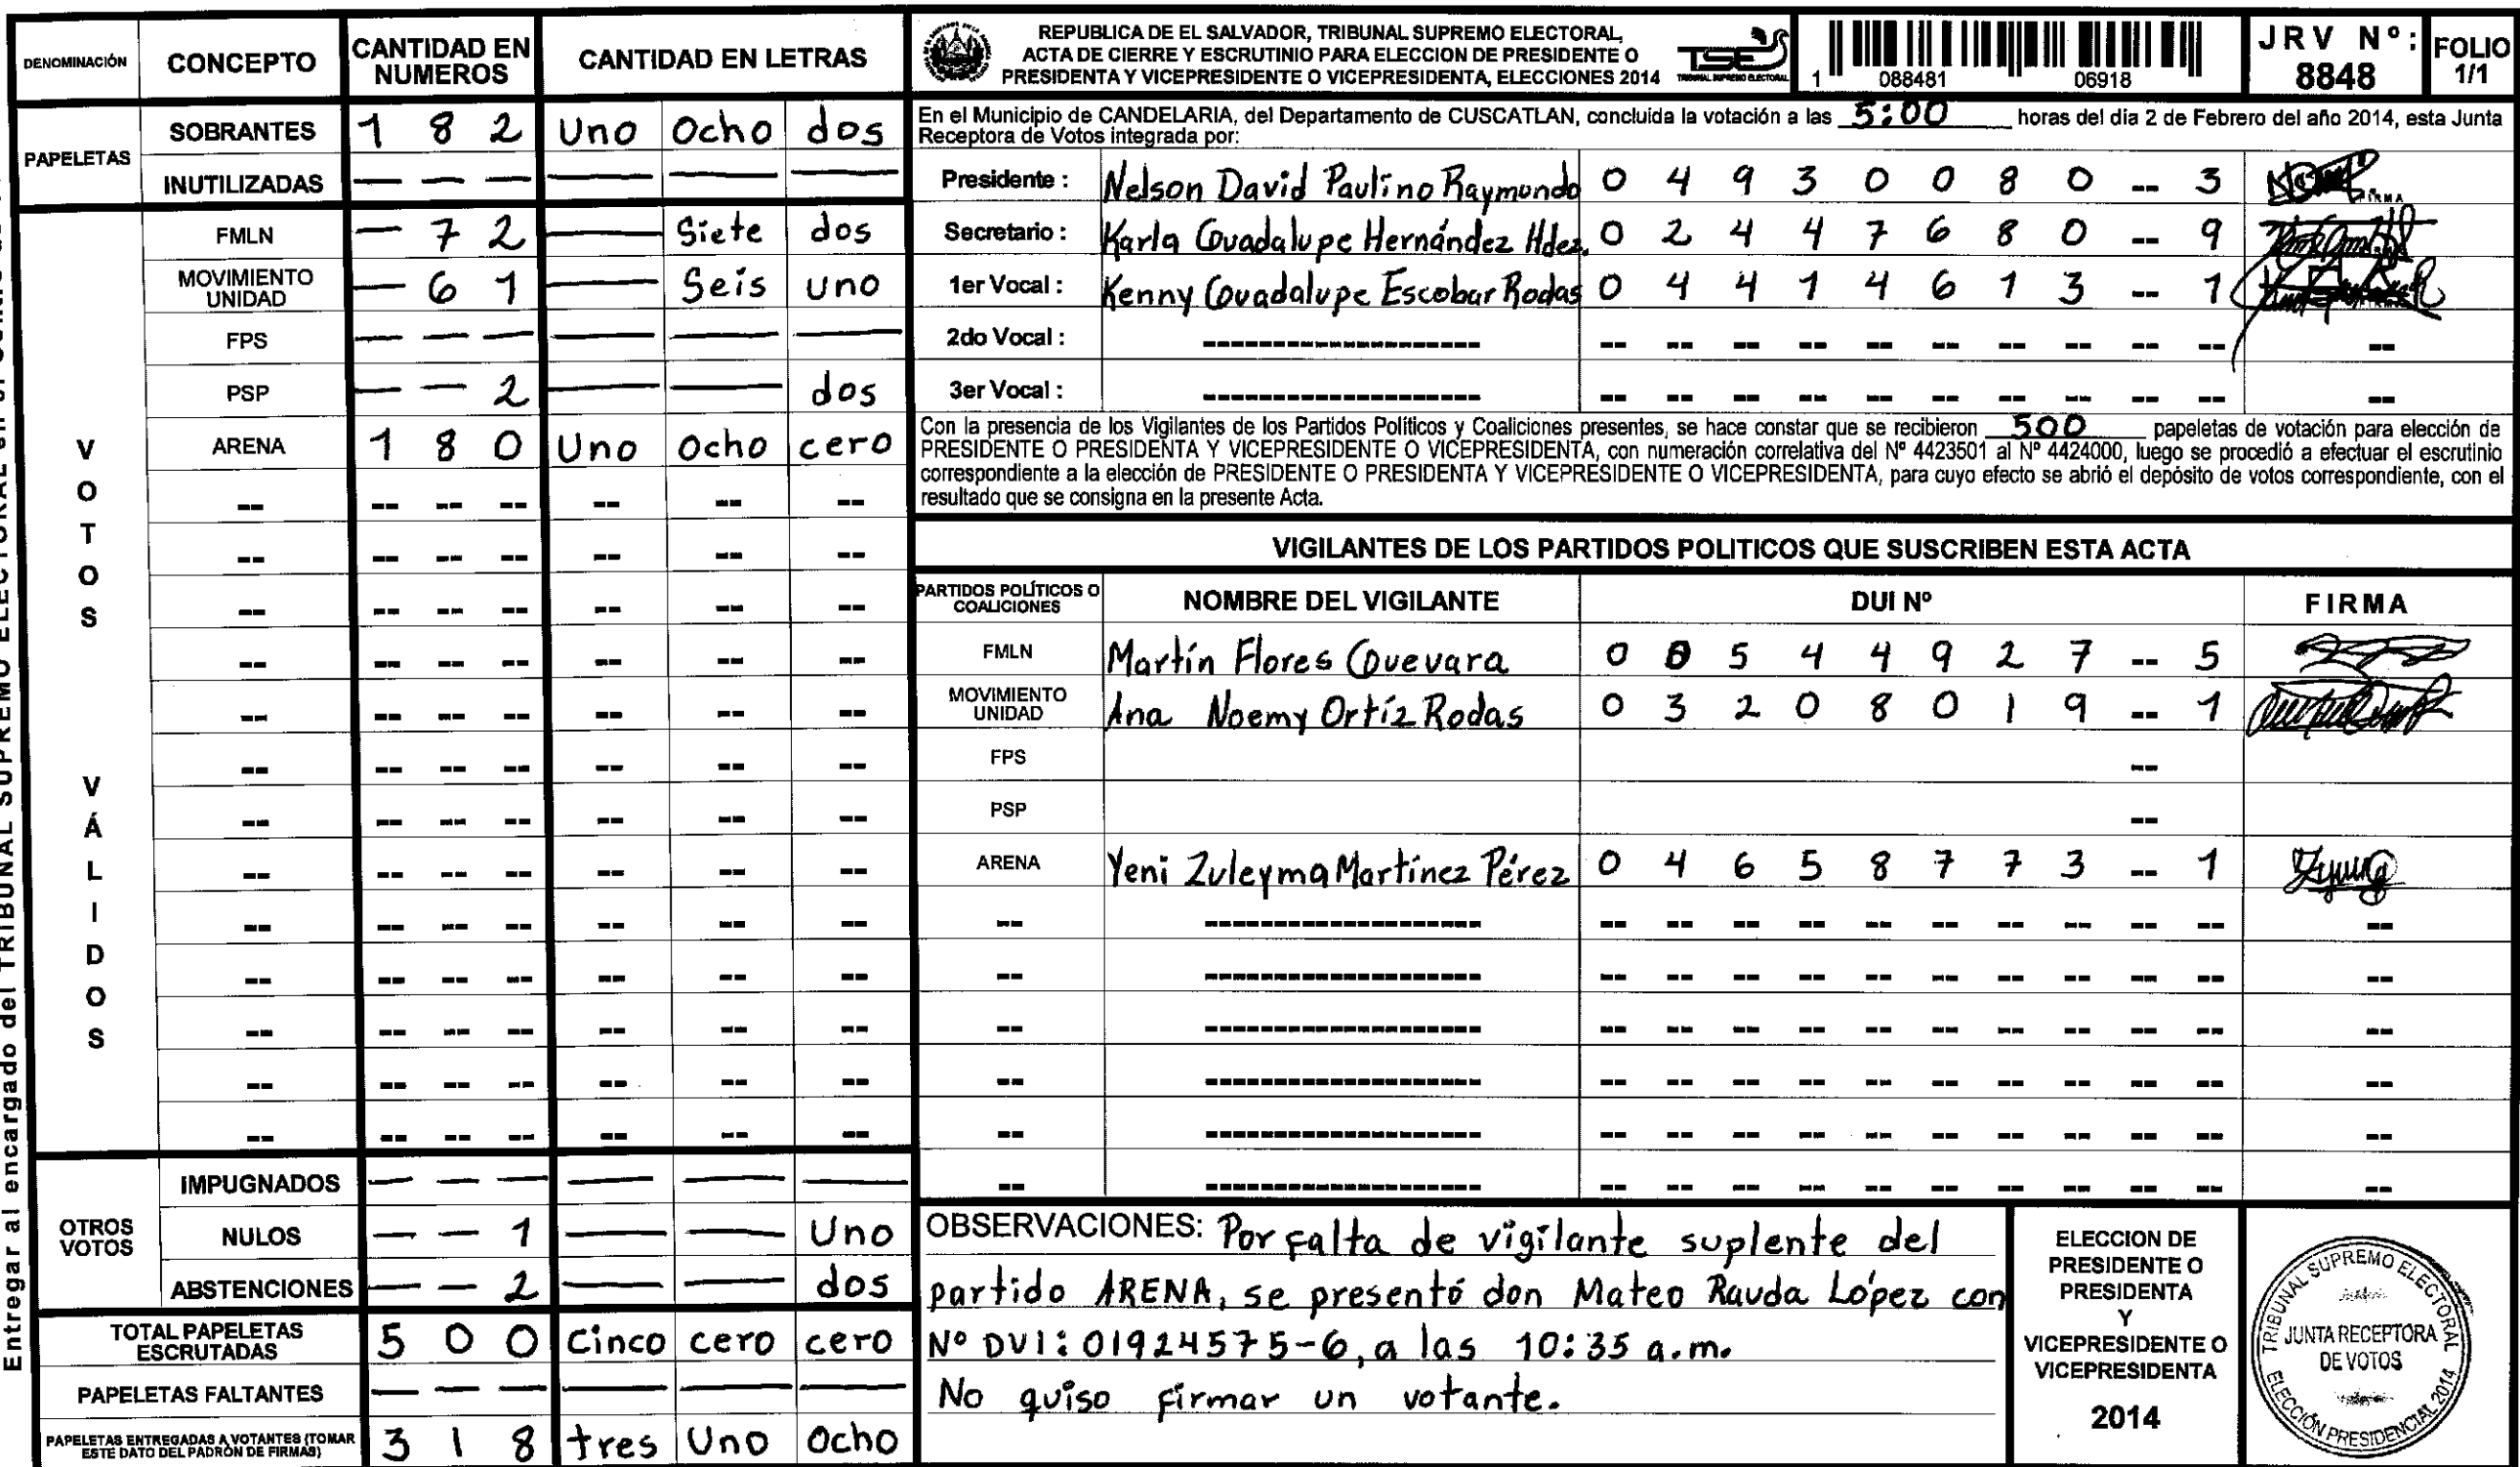 DENOMINACIÓN CONCEPTO CANTIDAD EN NUMEROS CANTIDAD EN LETRAS
PAPELETAS
SOBRANTES 1 8 2 Uno Ocho dos
INUTILIZADAS — — — — — —
VOTOS VÁLIDOS
FMLN — 7 2 — Siete dos
MOVIMIENTO UNIDAD — 6 1 — Seis uno
FPS — — — — — —
PSP — — 2 — — dos
ARENA 1 8 0 Uno Ocho cero
-- -- -- -- -- -- --
-- -- -- -- -- -- --
-- -- -- -- -- -- --
-- -- -- -- -- -- --
-- -- -- -- -- -- --
-- -- -- -- -- -- --
-- -- -- -- -- -- --
-- -- -- -- -- -- --
-- -- -- -- -- -- --
-- -- -- -- -- -- --
-- -- -- -- -- -- --
-- -- -- -- -- -- --
-- -- -- -- -- -- --
OTROS VOTOS
IMPUGNADOS — — — — — —
NULOS — — 1 — — Uno
ABSTENCIONES — — 2 — — dos
TOTAL PAPELETAS ESCRUTADAS 5 0 0 Cinco cero cero
PAPELETAS FALTANTES — — — — — —
PAPELETAS ENTREGADAS A VOTANTES (TOMAR ESTE DATO DEL PADRÓN DE FIRMAS) 3 1 8 tres Uno Ocho
Entregar al encargado del TRIBUNAL SUPREMO ELECTORAL en
REPUBLICA DE EL SALVADOR, TRIBUNAL SUPREMO ELECTORAL,
ACTA DE CIERRE Y ESCRUTINIO PARA ELECCION DE PRESIDENTE O
PRESIDENTA Y VICEPRESIDENTE O VICEPRESIDENTA, ELECCIONES 2014
TSE
TRIBUNAL SUPREMO ELECTORAL
1 088481 06918
JRV Nº: 8848
FOLIO 1/1
En el Municipio de CANDELARIA, del Departamento de CUSCATLAN, concluida la votación a las 5:00 horas del dia 2 de Febrero del año 2014, esta Junta
Receptora de Votos integrada por:
Presidente : Nelson David Paulino Raymundo 0 4 9 3 0 0 8 0 -- 3 FIRMA
Secretario : Karla Guadalupe Hernández Hdez. 0 2 4 4 7 6 8 0 -- 9
1er Vocal : Kenny Guadalupe Escobar Rodas 0 4 4 1 4 6 1 3 -- 1
2do Vocal : -------------------- -- -- -- -- -- -- -- -- -- -- --
3er Vocal : -------------------- -- -- -- -- -- -- -- -- -- -- --
Con la presencia de los Vigilantes de los Partidos Políticos y Coaliciones presentes, se hace constar que se recibieron 500 papeletas de votación para elección de
PRESIDENTE O PRESIDENTA Y VICEPRESIDENTE O VICEPRESIDENTA, con numeración correlativa del Nº 4423501 al Nº 4424000, luego se procedió a efectuar el escrutinio
correspondiente a la elección de PRESIDENTE O PRESIDENTA Y VICEPRESIDENTE O VICEPRESIDENTA, para cuyo efecto se abrió el depósito de votos correspondiente, con el
resultado que se consigna en la presente Acta.
VIGILANTES DE LOS PARTIDOS POLITICOS QUE SUSCRIBEN ESTA ACTA
PARTIDOS POLÍTICOS O COALICIONES NOMBRE DEL VIGILANTE DUI Nº FIRMA
FMLN Martín Flores Guevara 0 0 5 4 4 9 2 7 -- 5
MOVIMIENTO UNIDAD Ana Noemy Ortíz Rodas 0 3 2 0 8 0 1 9 -- 1
FPS --
PSP --
ARENA Yeni Zuleyma Martínez Pérez 0 4 6 5 8 7 7 3 -- 1
-- -------------------- -- -- -- -- -- -- -- -- -- -- --
-- -------------------- -- -- -- -- -- -- -- -- -- -- --
-- -------------------- -- -- -- -- -- -- -- -- -- -- --
-- -------------------- -- -- -- -- -- -- -- -- -- -- --
-- -------------------- -- -- -- -- -- -- -- -- -- -- --
-- -------------------- -- -- -- -- -- -- -- -- -- -- --
OBSERVACIONES: Por falta de vigilante suplente del
partido ARENA, se presentó don Mateo Rauda López con
Nº DUI: 01924575-6, a las 10:35 a.m.
No quiso firmar un votante.
ELECCION DE
PRESIDENTE O
PRESIDENTA
Y
VICEPRESIDENTE O
VICEPRESIDENTA
2014
TRIBUNAL SUPREMO ELECTORAL
JUNTA RECEPTORA
DE VOTOS
ELECCIÓN PRESIDENCIAL 2014